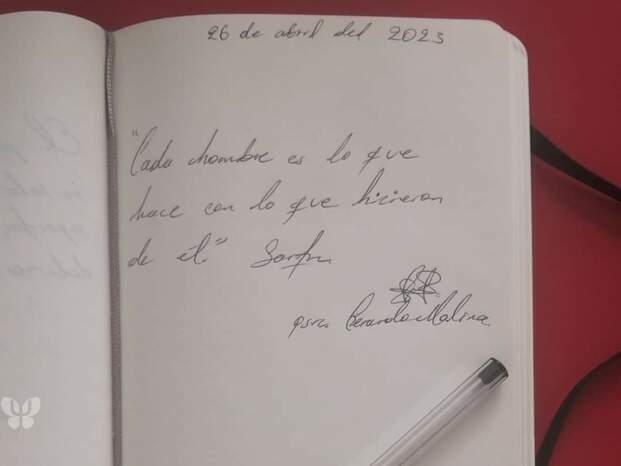 26 de abril del 2023
"Cada hombre es lo que
hace con lo que hicieron
de él." Sartre
psic. Gerardo Molina